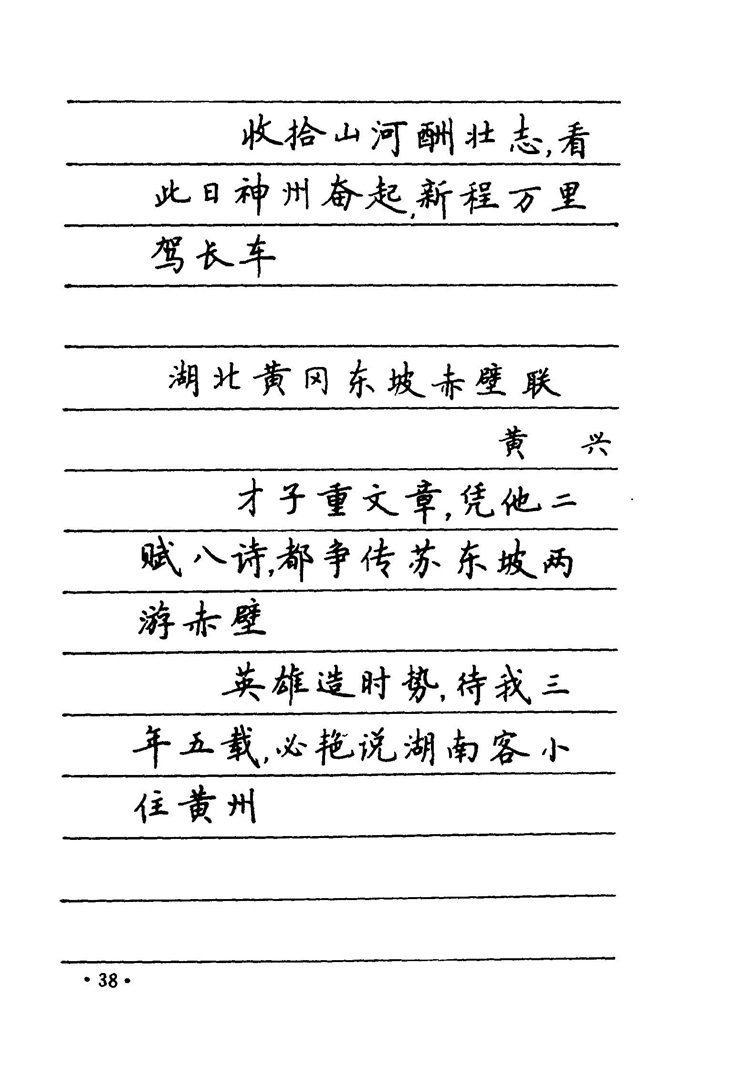 收拾山河酬壮志,看
此日神州奋起,新程万里
驾长车
湖北黄冈东坡赤壁联
黄 兴
才子重文章,凭他二
赋八诗,都争传苏东坡两
游赤壁
英雄造时势,待我三
年五载,必艳说湖南客小
住黄州
·38·